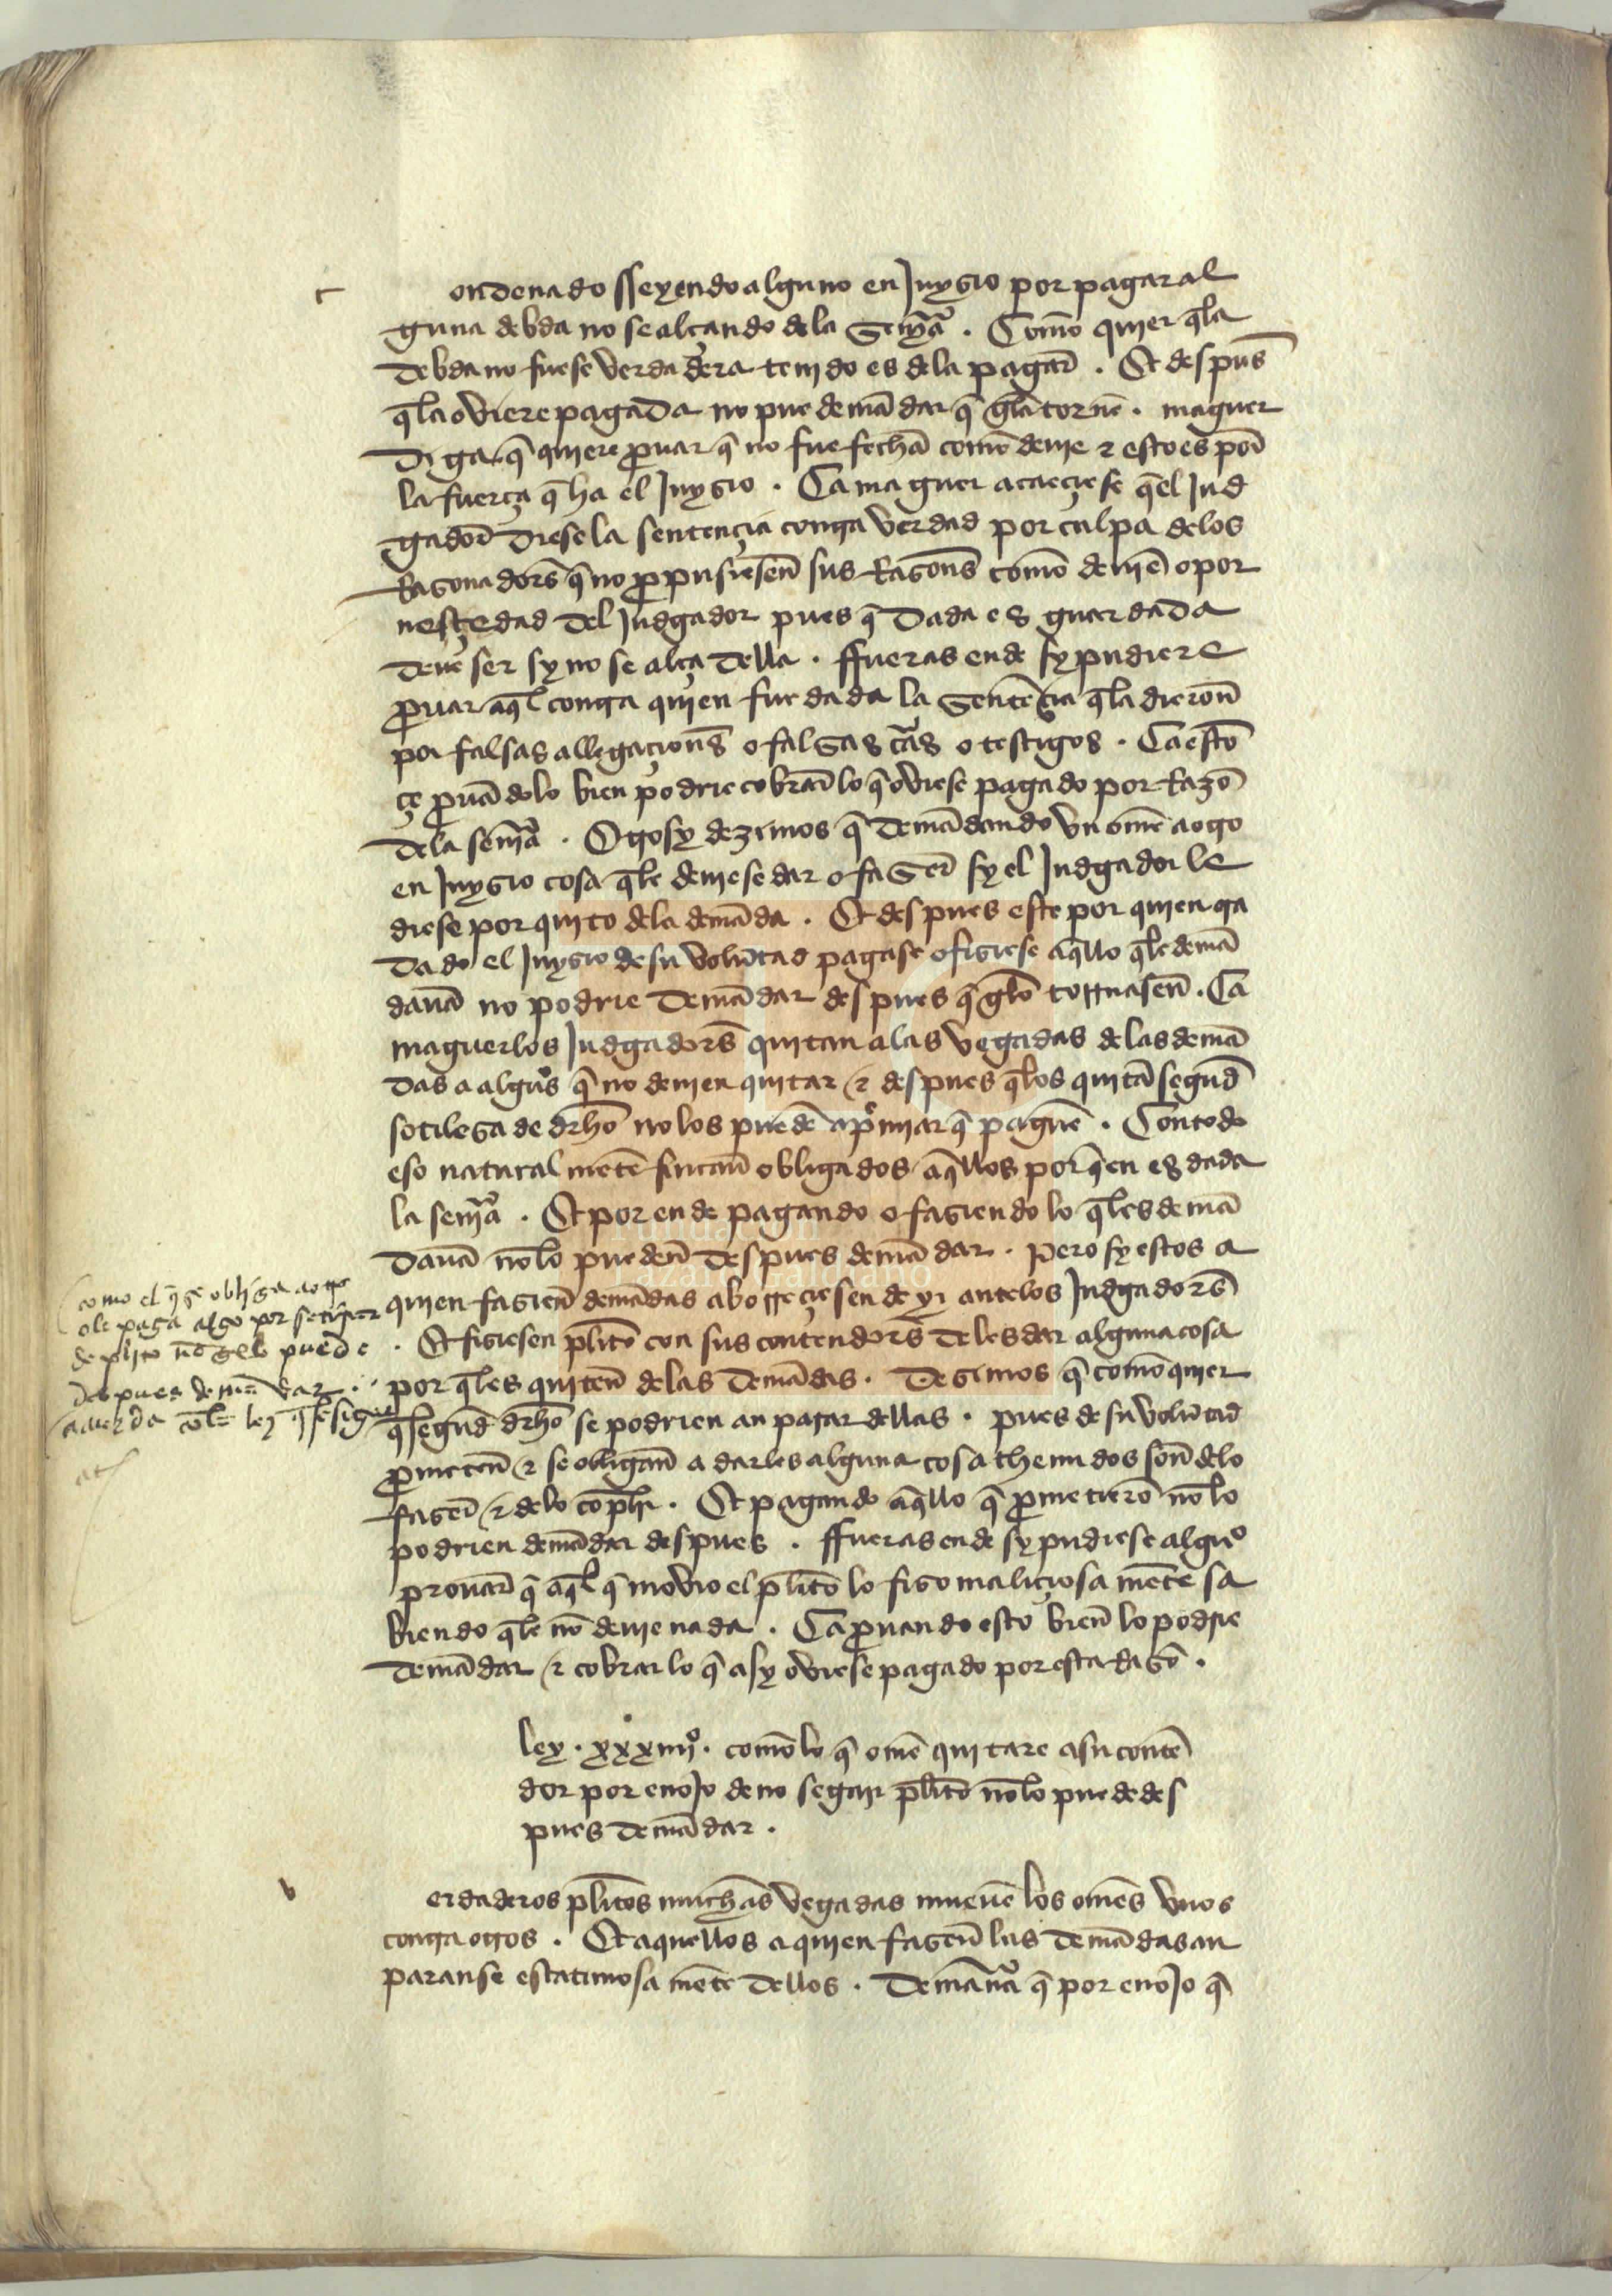 c
ondenado sseyendo alguno en Juyzio por pagar al
guna debda no se alçando dela senteͫçia . Comō quier q̄la
debda no fuese verdadera tenido es dela pagar̄ . Et despūs
q̄la oviere pagada no puede mādar q̄ gela tornē . maguer
diga q̄ quiere prouar q̄ no fue fecha comō deue ⁊ esto es por̄
la fuerça q̄ ha el Juyzio . Ca maguer acaeçiese q̄el Jud
gador̄ diese la sentençia contra verdad por culpa delos
Razonadors̄ q̄ no propusiesen̄ sus Razons̄ comō deuiē o por
nesçedad del Judgador pues q̄ dada es guardada
deue ser sy no se alça della . ffueras ende sy pudiere
prouar aq̄l contra quien fue dada la sentēçia q̄la dieron̄
por falsas allegaçions̄ o falsas cās o testigos . Ca estō
çe prouādolo bien podrie cobrar̄ lo q̄ oviese pagado por Razō
dela semā . Otrosy dezimos q̄ demādando vn omē a otro
en Juyzio cosa q̄le deuiese dar o fazer̄ sy el Judgador le
diese por quito dela demāda . Et despues este por quien era
dado el Juyzio de su volūtad pagase o fiziese aq̄llo q̄le demā
dauā no podrie demādar despues q̄ gelo tornasen̄ . Ca
maguer los Judgadors̄ quitan alas vegadas delas demā
das a algūos q̄ no deuien quitar ⁊ despues q̄los quitā segūd
sotileza de drho no los puedē apremiar q̄ paguē . Con todo
eso natural mētē fincan̄ obligados aq̄llos por q̄en es dada
la semā . Et por ende pagando o faziendo lo q̄les demā
dauā nōlo pueden̄ despues demādar . Pero sy estos a
quien fazien̄ demādas aborreçiesen de yr antelos Judgadors̄
. Et fiziesen plito con sus contendors̄ deles dar alguna cosa
por q̄les quiten̄ delas demādas . Dezimos q̄ comō quier
q̄ segūd drho se podrien anparar dellas . pues de su volūtad
prometen̄ ⁊ se obligan̄ a darles alguna cosa thenudos son̄ delo
fazer̄ ⁊ delo cōplir . Et pagando aq̄llo q̄ prometierō nōlo
podrien demādar despues . ffueras ende sy pudiese algūo
prouar̄ q̄ aq̄l q̄ movio el plito lo fizo maliçiosa mētē sa
biendo q̄le nō deuie nada . Ca prouando esto bien̄ lo podrie
demādar ⁊ cobrar lo q̄ asy oviese pagado por esta Razō .
como el q̄ se obliga a otro
o le paga algo por se quitar
de plito nō gelo puede
despues demādar .
acuerda cōla ley q̄ se sigue
ley . xxxiiijº . comō lo q̄ omē quitare a su contē
dor por enojo de no seguir plito nōlo puede des
pues demādar .
v
erdaderos plitos muchas vegadas mueuē los omēs vnos
contra otros . Et aquellos a quien fazen̄ las demādas an
paranse escatimosa mētē dellos . De manā q̄ por enojo q̄